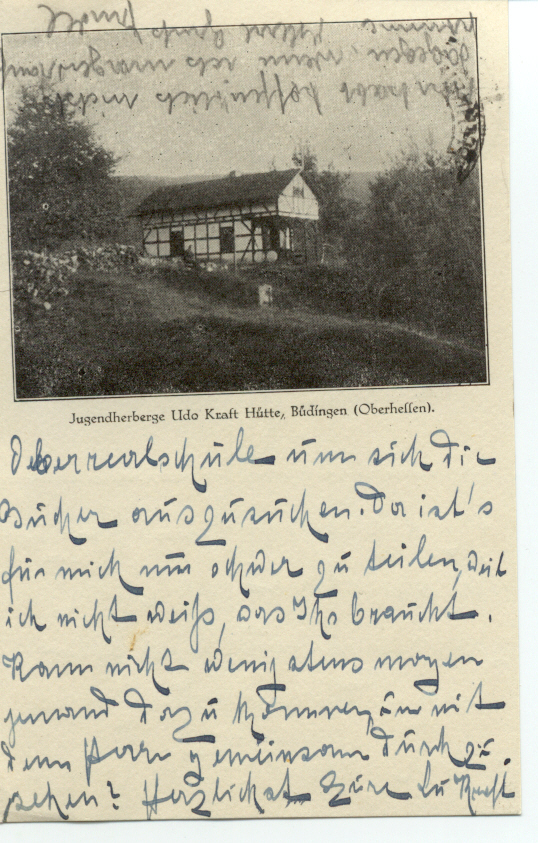 Jugendherberge Udo Kraft Hütte, Büdingen (Oberheſſen).
Oberrealschule um sich die
Bücher auszusuchen. Da ist's
für mich nun schwer zu teilen, weil
ich nicht weiß, was Ihr braucht.
Kann nicht wenigstens morgen
jemand dazu kommen, um mit
dem Herrn gemeinsam durchzu-
sehen? Herzlichst Eure Lu Kraft
Ihr habt hoffentlich nichts
dagegen, wenn ich morgen
komme. Gruß